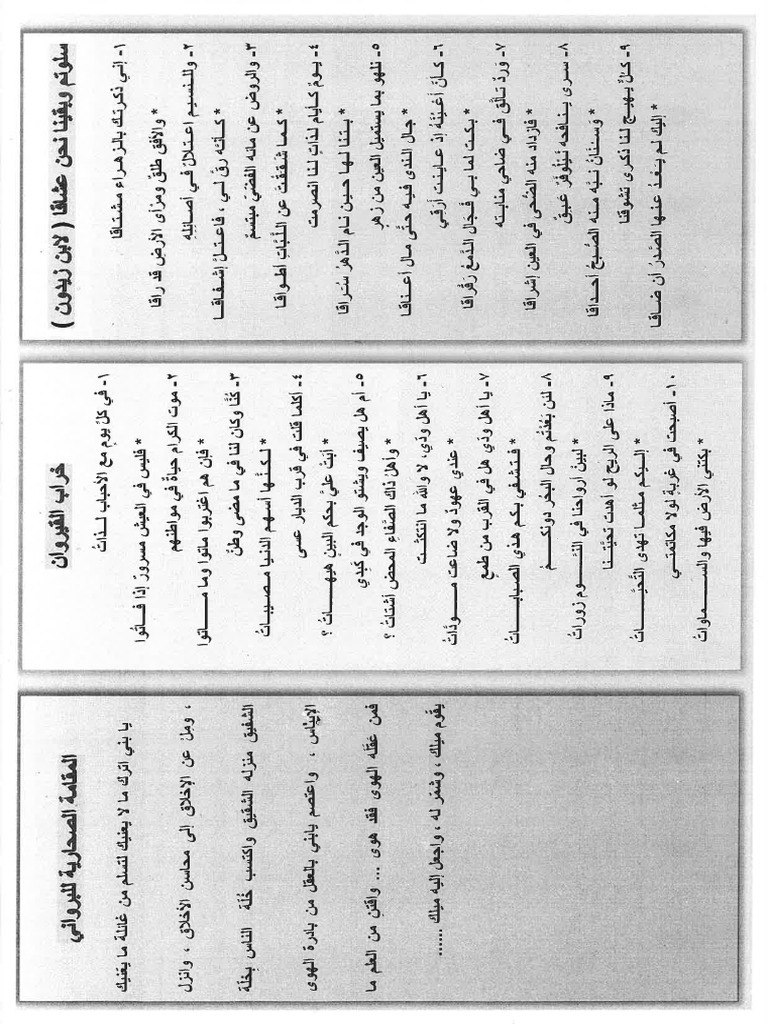 سلوتم وبقينا نحن عشاقا ( لابن زيدون )
١- إني ذكرتك بالزهراء مشتاقا
* والأفق طلق ومرأى الأرض قد راقا
٢- وللنسيم اعتلال في أصائله
* كأنه رق لي ، فاعتل إشفاقا
٣- والروض عن مائه الفضي مبتسم
* كما شققت عن اللبات أطواقا
٤- يوم كأيام لذات لنا انصرمت
* بتنا لها حين نام الدهر سراقا
٥- نلهو بما يستميل العين من زهر
* جال الندى فيه حتى مال أعناقا
٦- كأن أعينه إذ عاينت أرقي
* بكت لما بي فجال الدمع رقراقا
٧- ورد تألق في ضاحي منابته
* فازداد منه الضحى في العين إشراقا
٨- سرى ينافحه نيلوفر عبق
* وسنان نبه منه الصبح أحداقا
٩- كل يهيج لنا ذكرى تشوقنا
* إليك لم يعد عنها الصدر أن ضاقا
خراب القيروان
١- في كل يوم مع الأحباب لذات
* فليس في العيش مسرور إذا فاتوا
٢- موت الكرام حياة في مواطنهم
* فإن هم اغتربوا ماتوا وما ماتوا
٣- كنا وكان لنا في ما مضى وطن
* لكنها أسهم الدنيا مصيبات
٤- أكلما قلت في قرب الديار عسى
* أبت علي بحكم البين هيهات ؟
٥- أم هل يصيف ويشتو الوجد في كبدي
* وأهل ذاك الصفاء المحض أشتات ؟
٦- يا أهل ودي، لا والله ما انتكثت
* عندي عهود ولا ضاعت مودات
٧- يا أهل ودي هل في القرب من طمع
* فتشفي بكم هذي الصبابات
٨- لئن بعدتم وحال البحر دونكم
* لبين أرواحنا في النوم زورات
٩- ماذا على الريح لو أهدت تحيتنا
* إليكم مثلما تهدى التحيات
١٠- أصبحت في غربة لولا مكاتمتي
* بكتني الأرض فيها والسماوات
المقامة الصحارية للبرواني
يا بني اترك ما لا يعنيك لتسلم من غائلة ما يعنيك
، ومل عن الإخلاق إلى محاسن الأخلاق ، وانزل
الشفيق منزله الشقيق واكتسب خلة الناس بخلة
الإيناس ، واعتصم يابني بالعقل من بادرة الهوى
فمن عقله الهوى فقد هوى ... واقتن من العلم ما
يقوم ميلك ، وشمر له ، واجعل إليه ميلك ......